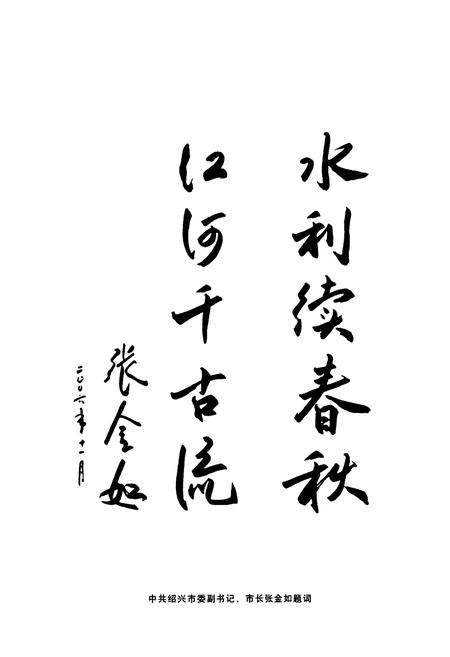 水利续春秋
江河千古流
张金如
二〇〇六年十一月
中共绍兴市委副书记、市长张金如题词